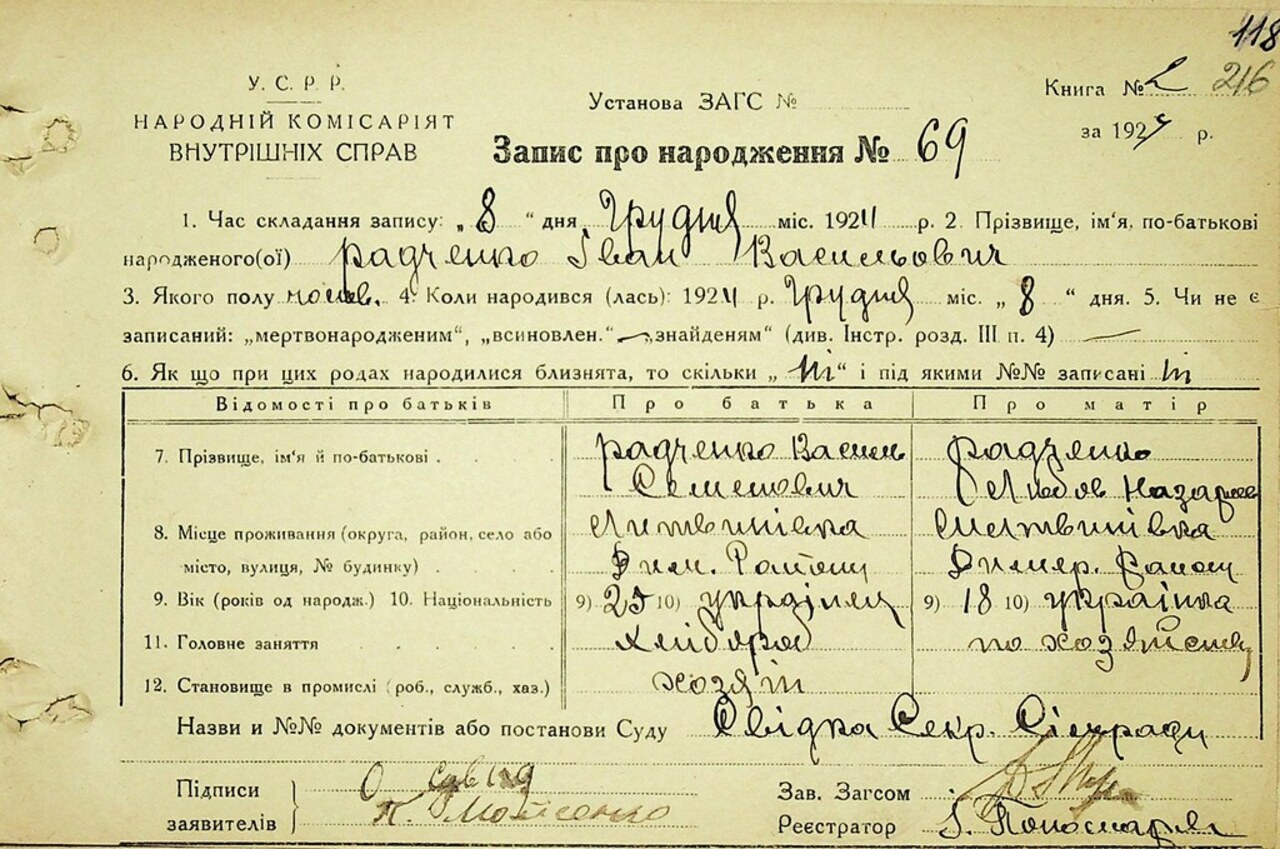 118
216
У. С. Р. Р.
НАРОДНІЙ КОМІСАРІЯТ
ВНУТРІШНІХ СПРАВ
Установа ЗАГС №
Книга №
за 1924 р.
Запис про народження № 69
1. Час складання запису: „ 8 “ дня Грудня міс. 1924 р. 2. Прізвище, ім'я, по-батькові
народженого(ої) Радченко Іван Васильович
3. Якого полу 4. Коли народився (лась): 1924 р. Грудня міс. „ 8 “ дня. 5. Чи не є
записаний: „мертвонародженим“, „всиновлен.“ — „знайденям“ (див. Інстр. розд. III п. 4) —
6. Як що при цих родах народилися близнята, то скільки „ Ні “ і під якими №№ записані Ні
Відомості про батьків Про батька Про матір
7. Прізвище, ім'я й по-батькові . . . Радченко Василь Семенович Радченко Любов
8. Місце проживання (округа, район, село або місто, вулиця, № будинку) . . . . Литвинівка Дим. Району Литвинівка Димер. Району
9. Вік (років од народж.) 10. Національність 9) 25 10) українец 9) 18 10) українка
11. Головне заняття . . . . . Хлібороб по хозяйству
12. Становище в промислі (роб., служб., хаз.) хозяїн
Назви и №№ документів або постанови Суду Свідка Секр. Сільради
Підписи
заявителів
К. Мойсенко
Зав. Загсом
Реєстратор